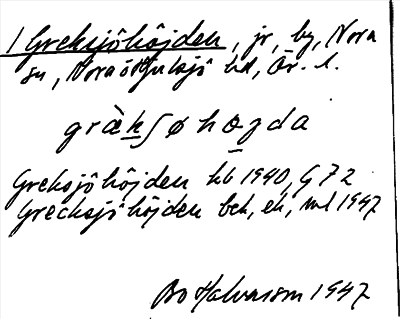 1 Greksjöhöjden, jr, by, Nora
sn, Nora o Hjulsjö hd, Ör. l.
gràkʃøhøgda
Greksjöhöjden hb 1940, G 72
Grecksjöhöjden bek, ek, ml 1947
Bo Halvarson 1947